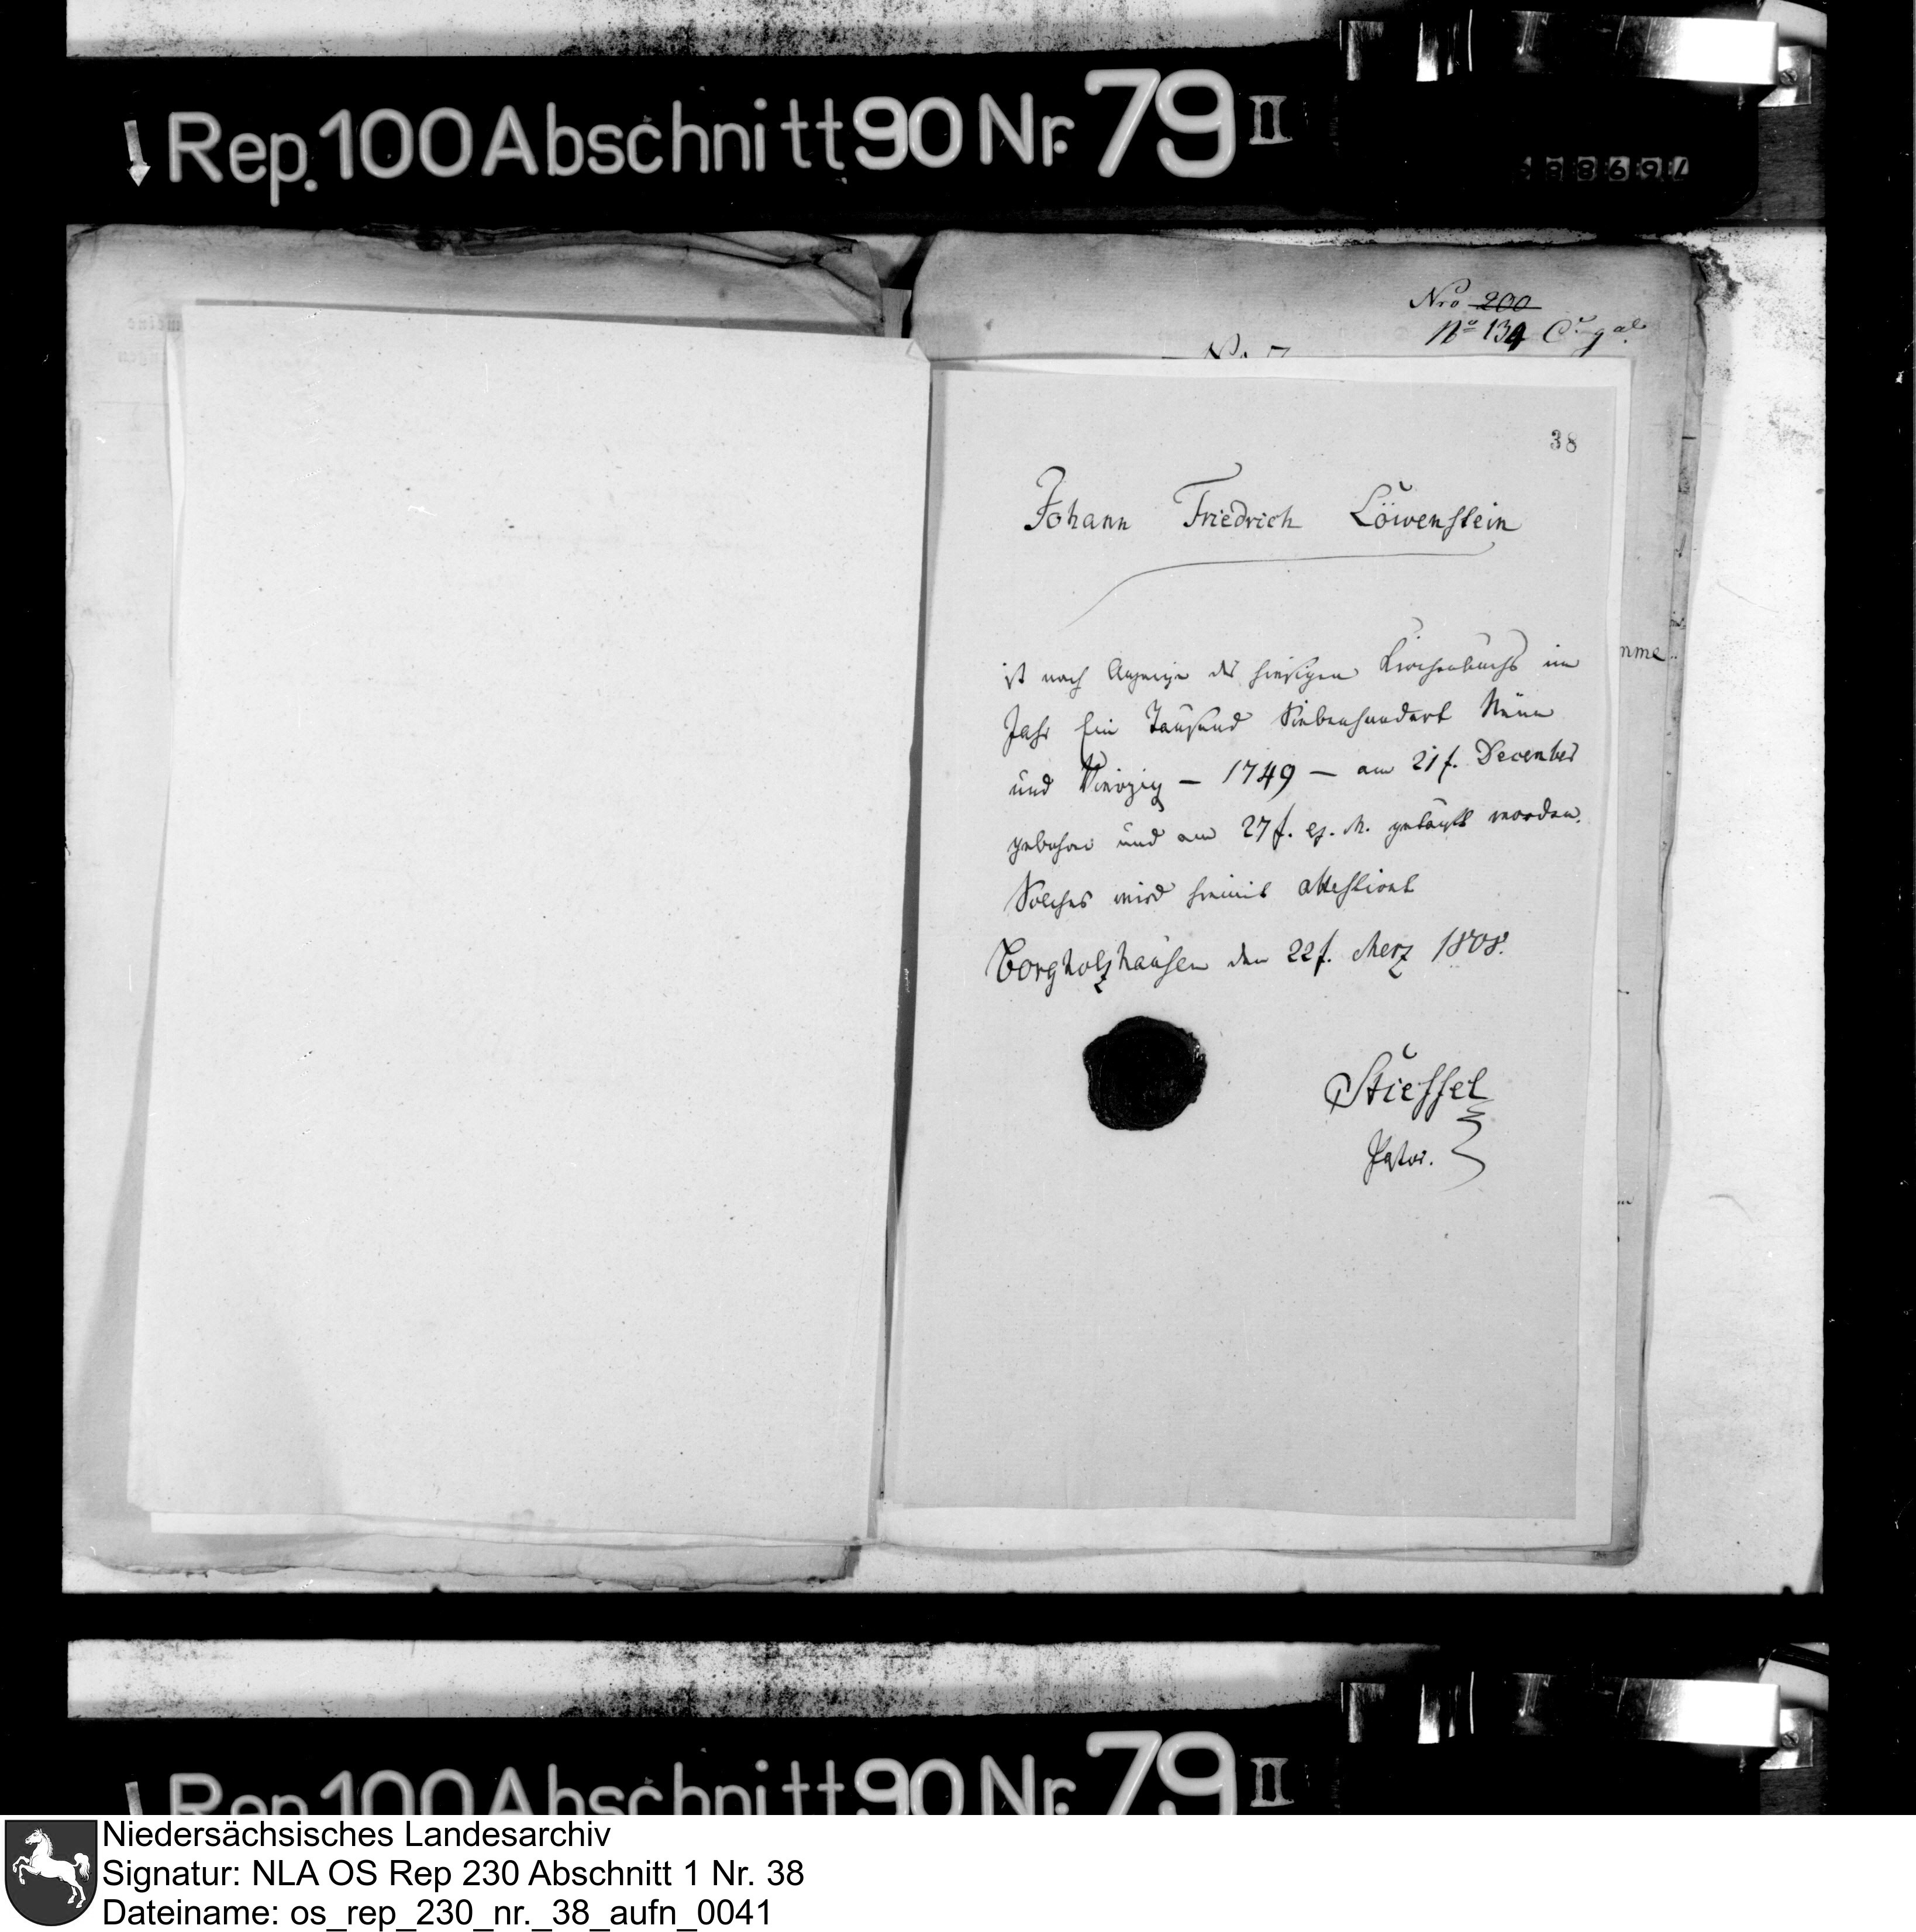 Rep. 100 Abschnitt 90 Nr. 79 II
Nro 200
No 134
38
Johann Friedrich Löwenstein
ist nach Anzeige des hiesigen Kirchenbuchs im
Jahr Ein Tausend Siebenhundert Neun
und Vierzig – 1749 – am 21t. December
gebohren und am 27t. ej. M. getauft worden.
Solches wird hiemit attestirt
Borgholzhausen den 22t. Merz 1808.
Stieffel
Pastor.
nme
Rep. 100 Abschnitt 90 Nr. 79 II
Niedersächsisches Landesarchiv
Signatur: NLA OS Rep 230 Abschnitt 1 Nr. 38
Dateiname: os_rep_230_nr._38_aufn_0041